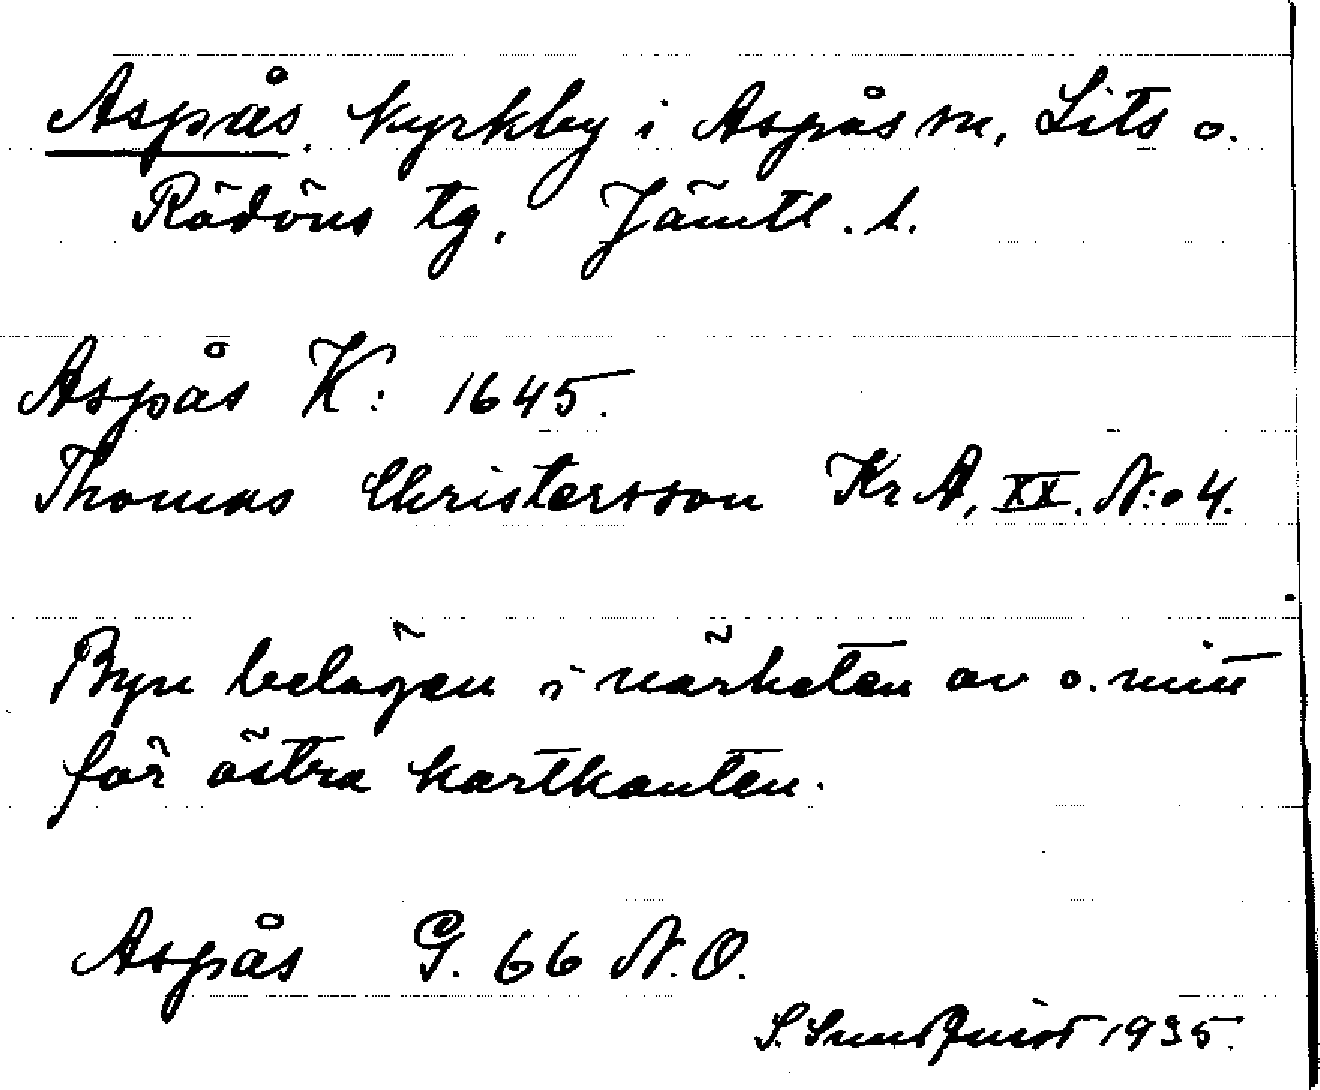 Aspås. Kyrkby i Aspås sn, Lits o.
Rödöns tg. Jämtl. l.
Aspås K: 1645.
Thomas Christersson Kr A, XX. N:o 4.
Byn belägen i närheten av o. mitt
för östra kartkanten.
Aspås G. 66 N.O.
S. Sundquist 1935.